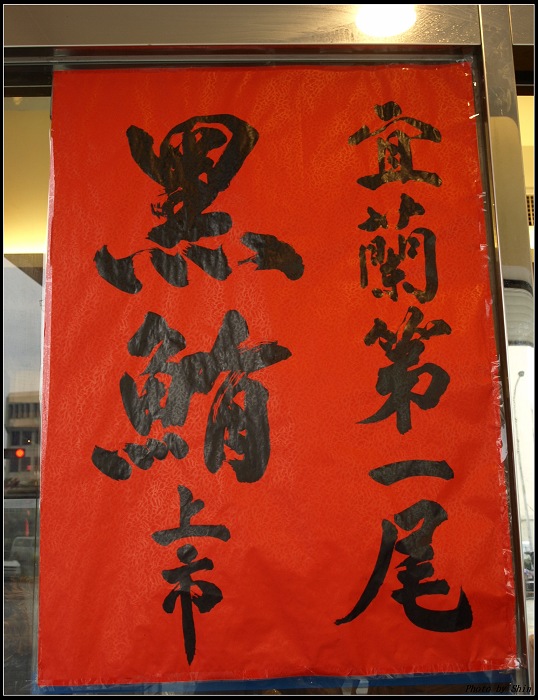 宜蘭第一尾
黑鮪上市
Photo by Shin